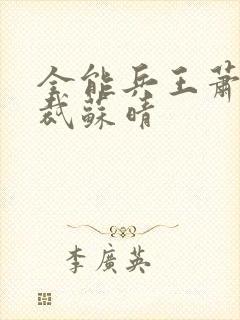 全能兵王蕭
裁蘇晴
李廣英